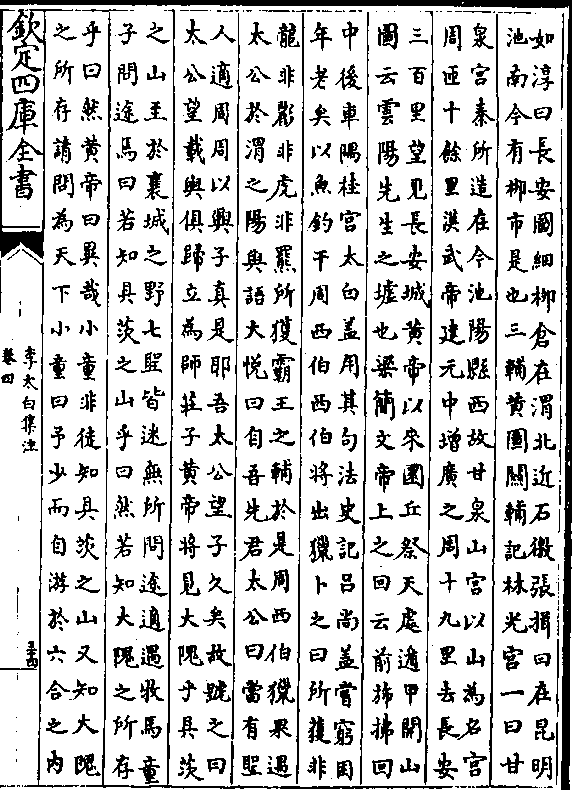 如淳曰長安圖細柳倉在渭北近石徼張揖曰在昆明
池南今有柳市是也三輔黄圖關輔記林光宫一曰甘
泉宫秦所造在今池陽縣西故甘泉山宫以山為名宫
周匝十餘里漢武帝建元中增廣之周十九里去長安
三百里望見長安城黄帝以來圜丘祭天處遁甲開山
圖云雲陽先生之墟也梁簡文帝上之回云前旆拂回
中後車隅桂宫太白盖用其句法史記吕尚盖嘗窮困
年老矣以魚釣干周西伯西伯將出獵卜之曰所獲非
龍非彲非虎非羆所獲霸王之輔於是周西伯獵果遇
太公於渭之陽與語大悦曰自吾先君太公曰當有聖
人適周周以興子真是耶吾太公望子久矣故號之曰
太公望載與俱歸立為師莊子黄帝將見大隗乎具茨
之山至於襄城之野七聖皆迷無所問途適遇牧馬童
子問途焉曰若知具茨之山乎曰然若知大隗之所存
乎曰然黄帝曰異哉小童非徒知具茨之山又知大隗
之所存請問為天下小童曰予少而自游於六合之内
欽定四庫全書
李太白集注
卷四
三十四